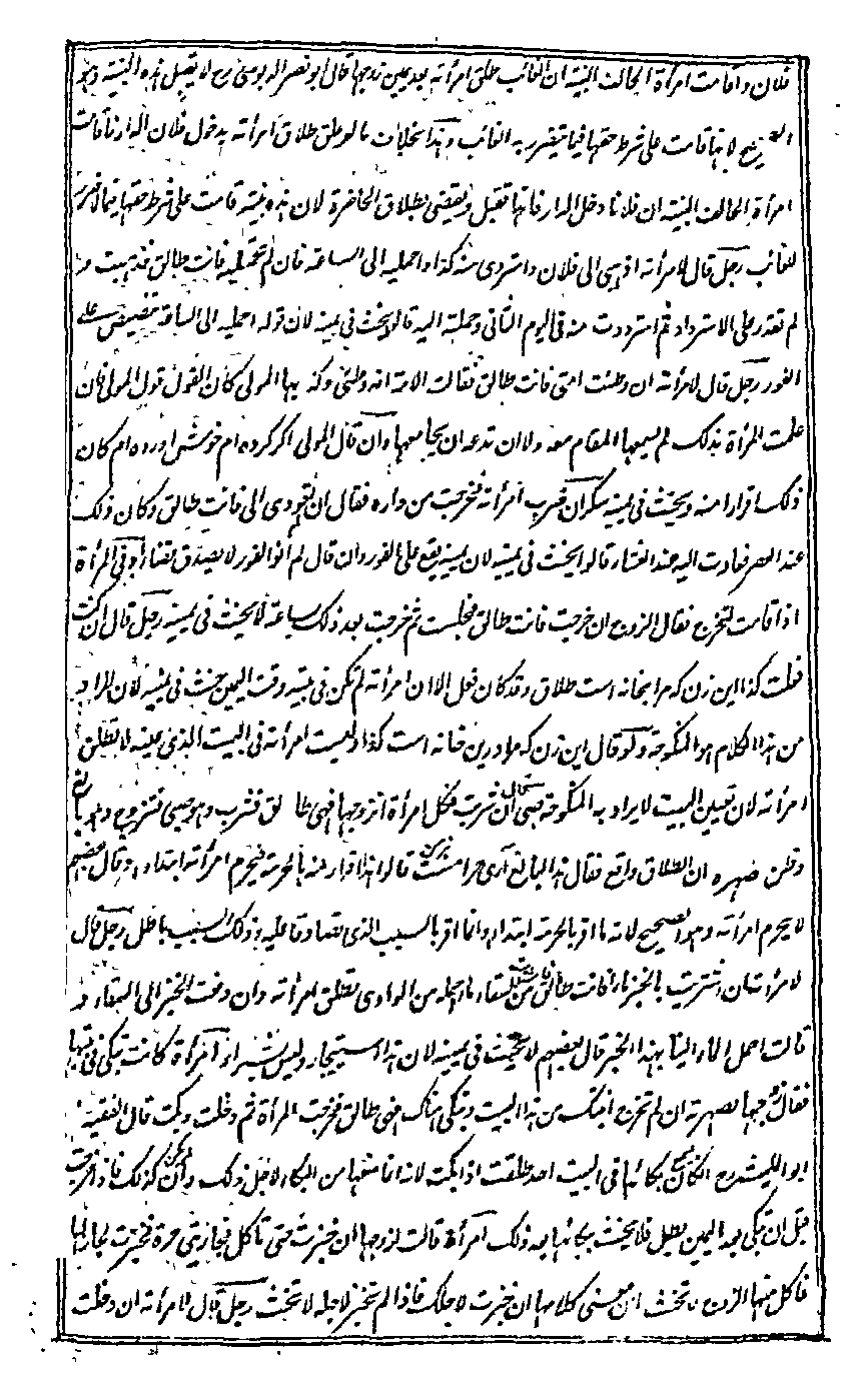 فلان واقامت امرأة الحالف البينة ان الغائب طلق امرأته بعد يمين زوجها قال ابو نصر الدبوسي رح لا تقبل هذه البينة وهو
الصحيح لانها قامت على شرط حقها فيما يتضرر به الغائب وهذا بخلاف ما لو علق طلاق امرأته بدخول فلان الدار فاقامت
امرأة الحالف البينة ان فلانا دخل الدار فانها تقبل ويقضى بطلاق الحاضرة لان هذه بينة قامت على شرط حقها فيما لا ضرر
للغائب رجل قال لامرأته اذهبي الى فلان واستردي منه كذا واحمليه الى الساعة فان لم تحمليه فانت طالق فذهبت و
لم تقدر على الاسترداد ثم استردت منه في اليوم الثاني وحملته اليه قالوا يحنث في يمينه لان قوله احمليه الى الساعة تنصيص على
الفور رجل قال لامرأته ان وطئت امتي فانت طالق فقالت الامة انه وطئني وكذبها المولى كان القول قول المولى فان
علمت المرأة بذلك لم يسعها المقام معه ولا ان تدعه ان يجامعها وان قال المولى اكر كرده ام خوش آورده ام كان
ذلك اقرارا منه ويحنث في يمينه سكران ضرب امرأته فخرجت من داره فقال ان لم تعودي الى فانت طالق وكان ذلك
عند العصر فعادت اليه عند العشاء قالوا يحنث في يمينه لان يمينه يقع على الفور وان قال لم انو الفور لا يصدق قضاء وفي المرأة
اذا قامت لتخرج فقال الزوج ان خرجت فانت طالق فجلست ثم خرجت بعد ذلك بساعة لا يحنث في يمينه رجل قال ان كنت
فعلت كذا اين زن كه مرا بخانه است طلاق وقد كان فعل الا ان امرأته لم تكن في بيته وقت اليمين حنث في يمينه لان المراد
من هذا الكلام هو المنكوحة ولو قال اين زن كه مرا درين خانه است كذا وليست امرأته في البيت الذي عينه لا تطلق
امرأته لان تعيين البيت لا يراد به المنكوحة صبي قال ان شربت فكل امرأة اتزوجها فهي طالق فشرب وهو صبي فتزوج وهو بالغ
وظن صهره ان الطلاق واقع فقال هذا البالغ آري حرامست قالوا هذا اقرار منه بالحرمة فيحرم امرأته ابتداء وقال بعضهم
لا يحرم امرأته وهو الصحيح لانه ما اقر بالحرمة ابتداء وانما اقر بالسبب الذي تصادقا عليه وذلك السبب باطل رجل قال
لامرأته ان اشتريت بالخبز ماء فانت طالق السقاء ماء حمله من الوادي تطلق امرأته وان دفعت الخبز الى السقاء و
قالت احمل الماء الينا بهذا الخبز قال بعضهم لا يحنث في يمينه لان هذا استيجار وليس بشراء امرأة كانت تبكي في بيتها
فقال زوجها لصهرته ان لم تخرج ابنتك من هذا البيت وتبكي هناك فهي طالق فخرجت المرأة ثم دخلت وبكت قال الفقيه
ابو الليث رح ان كان يسمع بكائها في البيت احد طلقت اذا بكت لانه انما منعها من البكاء لاجل ذلك وان لم يكن كذلك فاذا خرجت
قبل ان تبكي بعد اليمين بطل فلا يحنث ببكائها بعد ذلك امرأة قالت لزوجها ان خبزت حتى تأكل فجاريتي حرة فخبزت لجارتها
فاكل منها الزوج لا تحنث لان معنى كلامها ان خبزت لاجلك فاذا لم تخبز لاجله لا تحنث رجل قال لامرأته ان دخلت